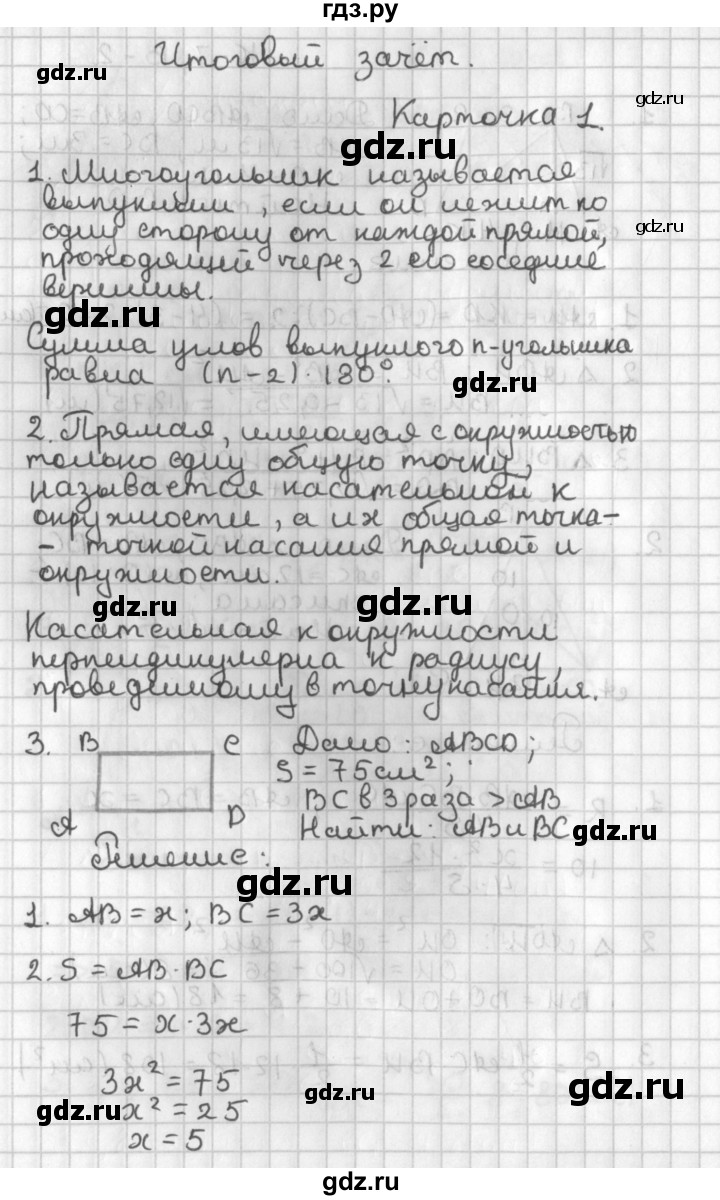 гдз.ру
Итоговый зачёт.
gdz.ru
gdz.ru
Карточка 1.
gdz.ru
1. Многоугольник называется
выпуклым, если он лежит по
одну сторону от каждой прямой,
gdz.ru
проходящей через 2 его соседние
вершины.
gdz.ru
Сумма углов выпуклого n-угольника
равна (n-2)·180°.
gdz.ru
2. Прямая, имеющая с окружностью
только одну общую точку,
называется касательной к
окружности, а их общая точка-
- точкой касания прямой и
окружности.
gdz.ru
gdz.ru
Касательная к окружности
перпендикулярна к радиусу,
проведённому в точку касания.
3. B C Дано: ABCD;
S = 75см²;
BC в 3 раза > AB
A D Найти: AB и BC
gdz.ru
Решение:
gdz.ru
1. AB = x; BC = 3x
2. S = AB·BC
75 = x·3x
3x² = 75
gdz.ru
gdz.ru
gdz.ru
x² = 25
x = 5
gdz.ru